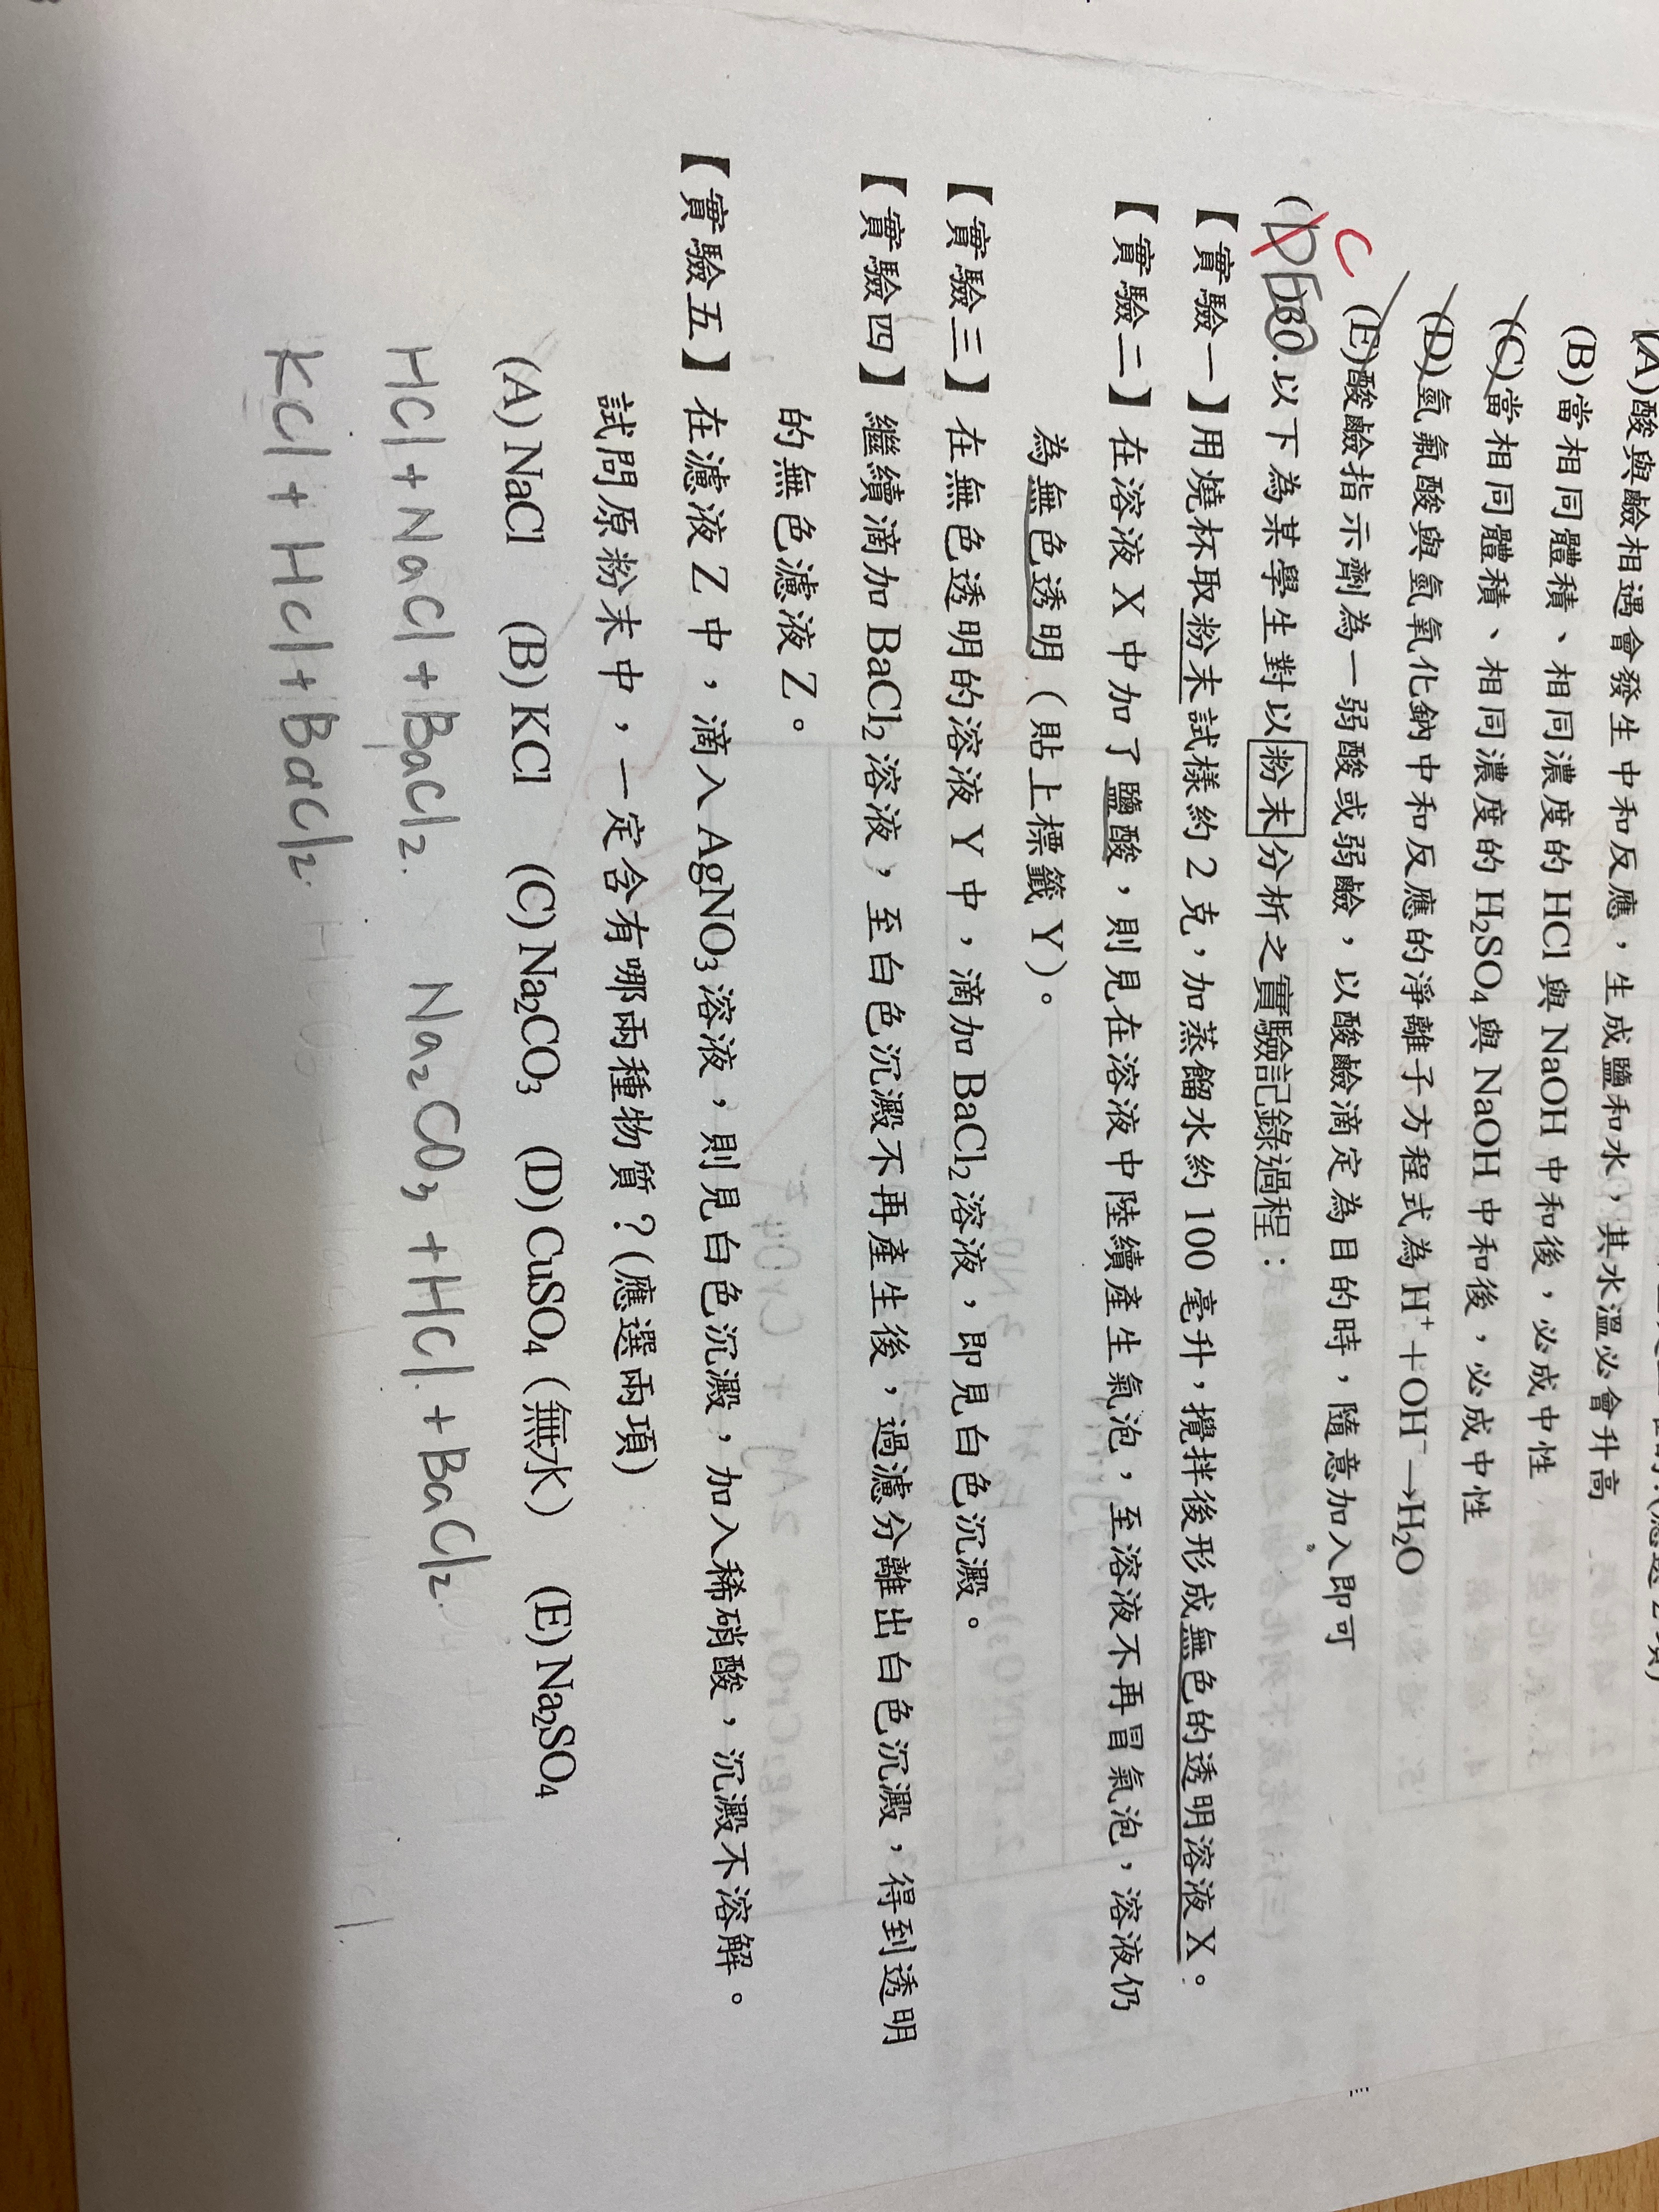 (A)酸與鹼相遇會發生中和反應，生成鹽和水，其水溫必會升高
(B)當相同體積、相同濃度的 HCl 與 NaOH 中和後，必成中性
(C)當相同體積、相同濃度的 H₂SO₄ 與 NaOH 中和後，必成中性
(D)氫氯酸與氫氧化鈉中和反應的淨離子方程式為 H⁺＋OH⁻→H₂O
(E)酸鹼指示劑為一弱酸或弱鹼，以酸鹼滴定為目的時，隨意加入即可
C
以下為某學生對以粉末分析之實驗記錄過程：
【實驗一】用燒杯取粉末試樣約 2 克，加蒸餾水約 100 毫升，攪拌後形成無色的透明溶液 X。
【實驗二】在溶液 X 中加了鹽酸，則見在溶液中陸續產生氣泡，至溶液不再冒氣泡，溶液仍
為無色透明（貼上標籤 Y）。
【實驗三】在無色透明的溶液 Y 中，滴加 BaCl₂ 溶液，即見白色沉澱。
【實驗四】繼續滴加 BaCl₂ 溶液，至白色沉澱不再產生後，過濾分離出白色沉澱，得到透明
的無色濾液 Z。
【實驗五】在濾液 Z 中，滴入 AgNO₃ 溶液，則見白色沉澱，加入稀硝酸，沉澱不溶解。
試問原粉末中，一定含有哪兩種物質？(應選兩項)
(A) NaCl (B) KCl (C) Na₂CO₃ (D) CuSO₄（無水） (E) Na₂SO₄
HCl + NaCl + BaCl₂. Na₂CO₃ + HCl + BaCl₂.
KCl + HCl + BaCl₂.